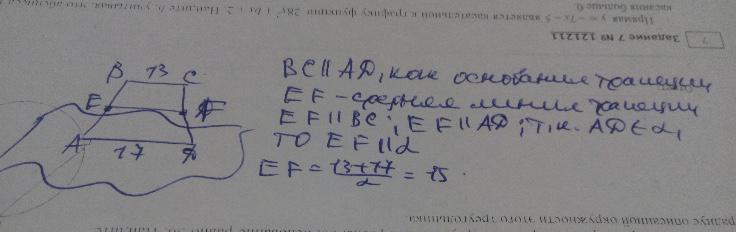 BC || AD, как основания трапеции
EF - средняя линия трапеции
EF || BC; EF || AD; т.к. AD ∈ α,
ТО EF || α
EF = 13+17/2 = 15.
B 13 C
E F
A 17 D
7 Задание 7 № 121211
Прямая y = -7x - 5 является касательной к графику функции 28x² + bx + 2. Найдите b, учитывая, что абсцисса
касания больше
радиус описанной окружности этого треугольника.